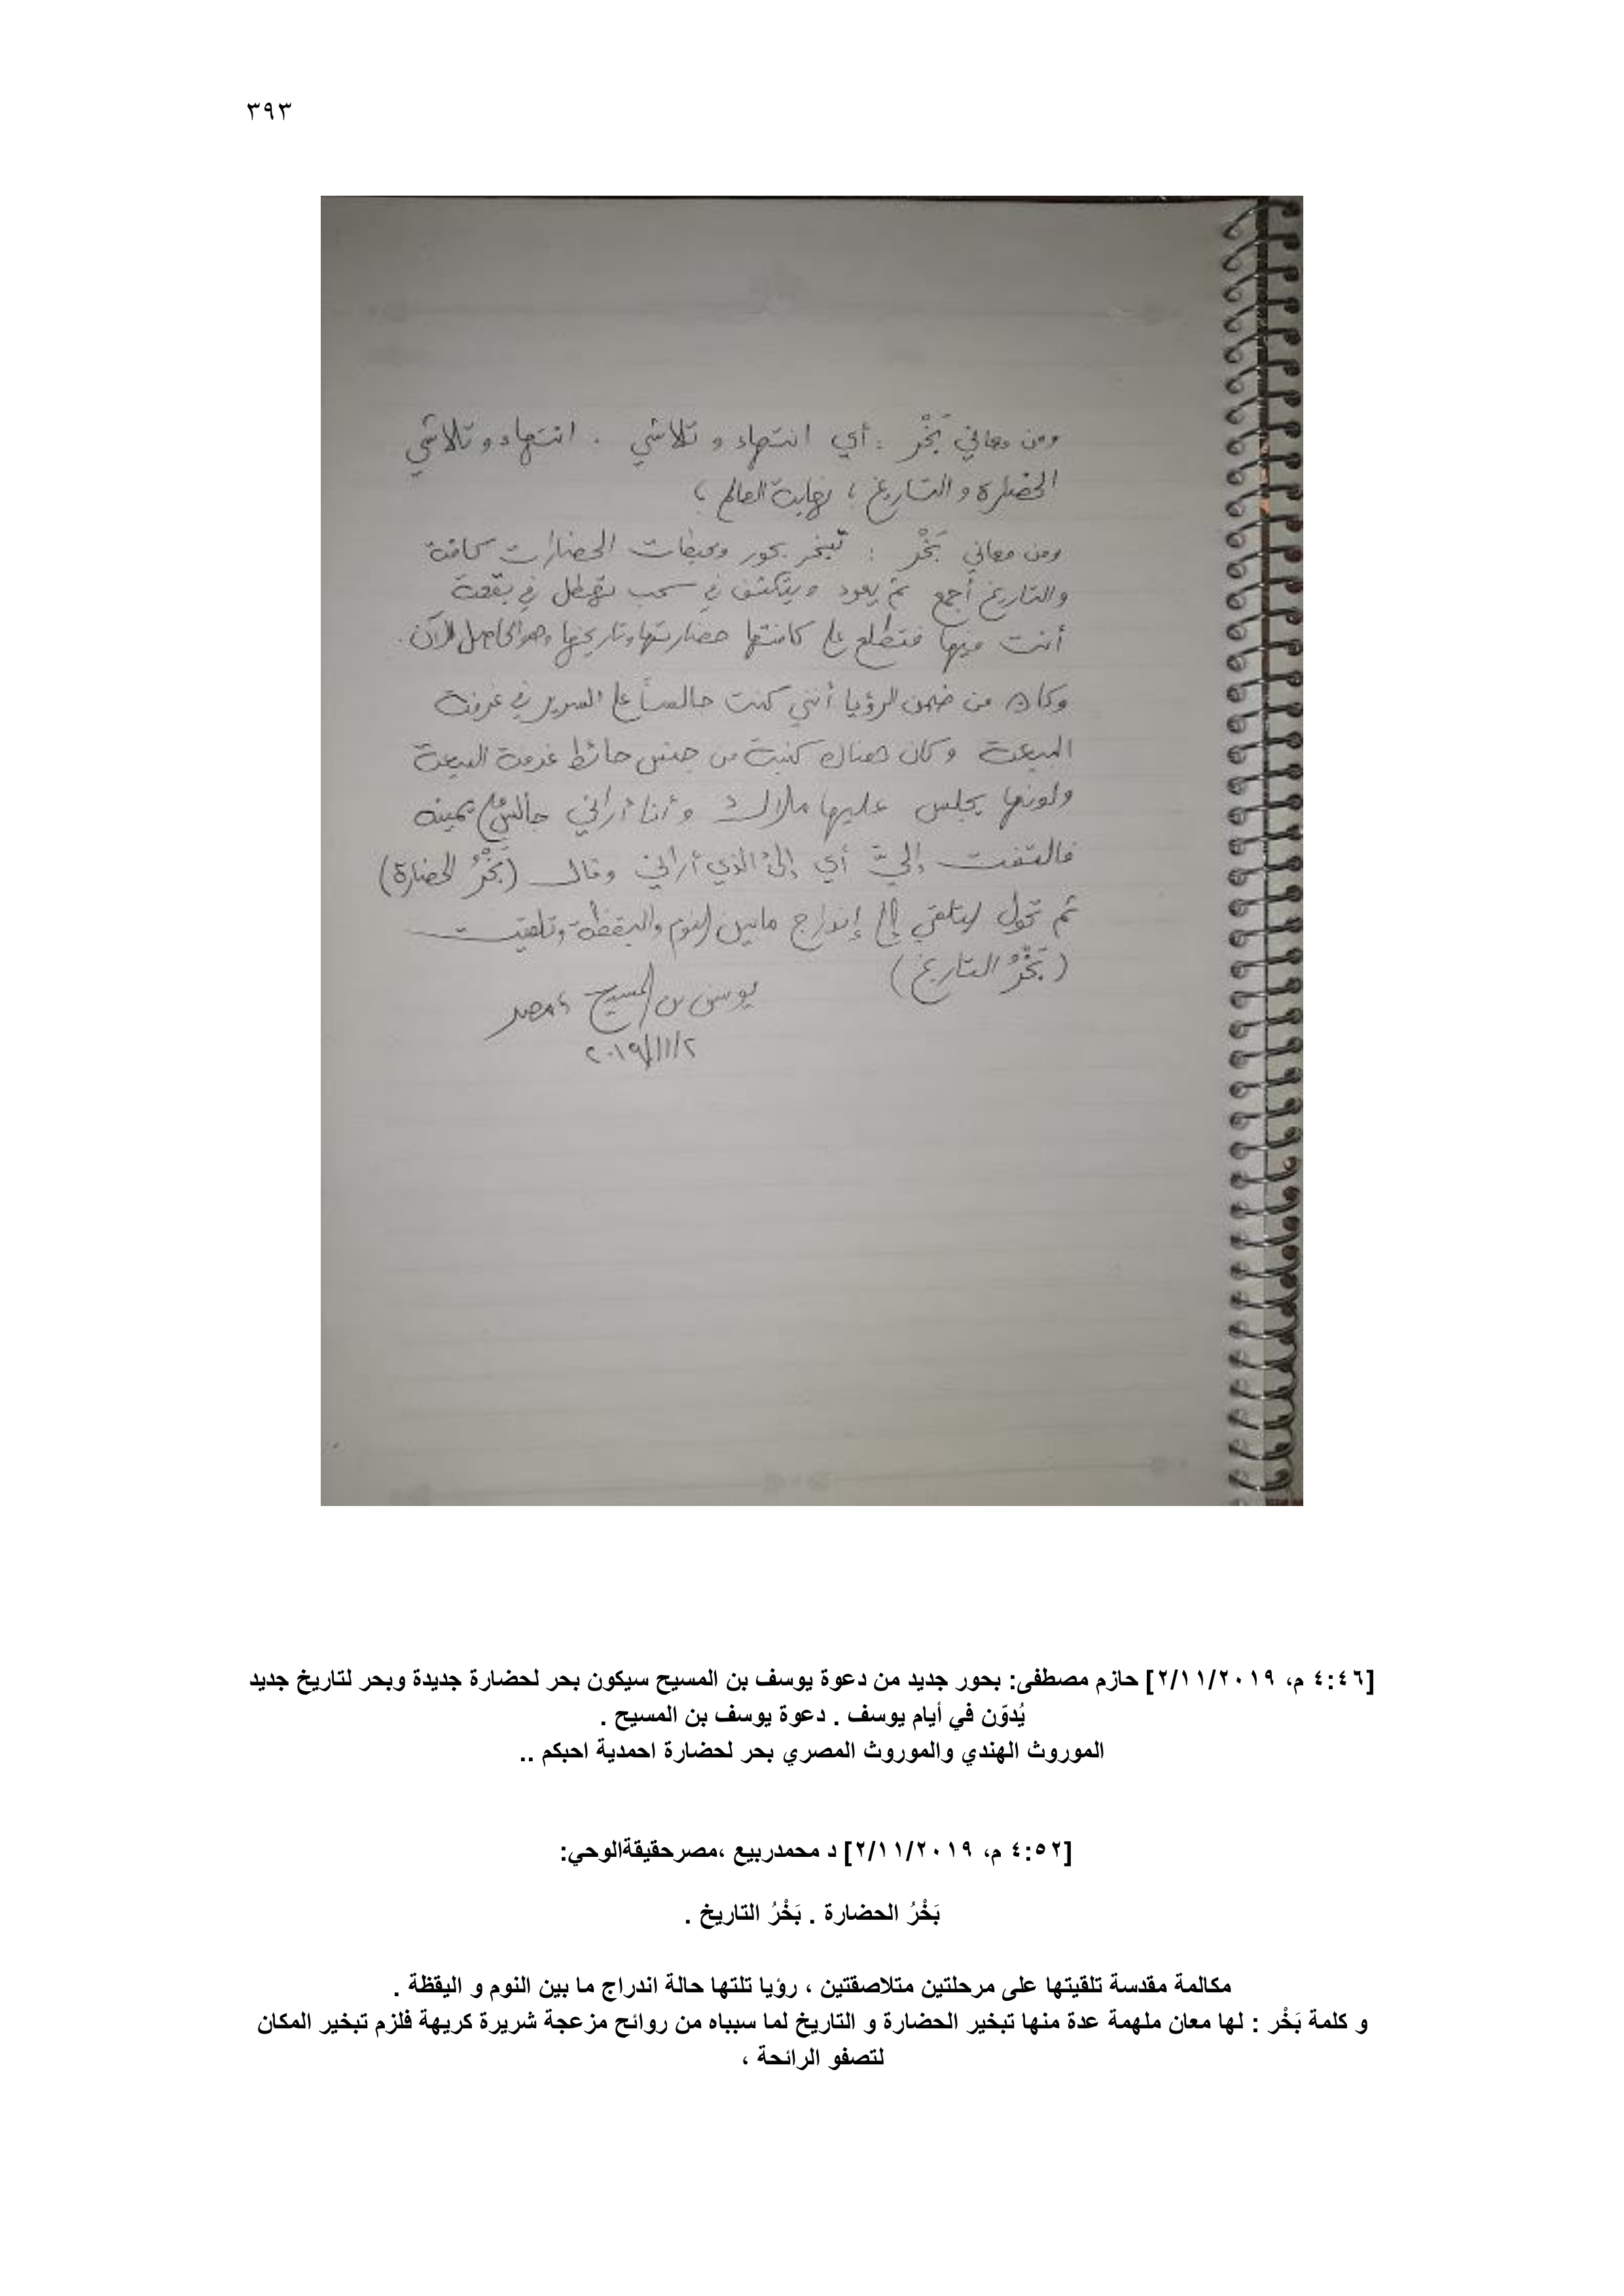 ٣٩٣
ومن معاني بَخْر : أي انتهاء و تلاشي . انتهاء و تلاشي
الحضارة و التاريخ ، نهاية العالم ،
ومن معاني بَخْر : تبخر بحور ومحيطات الحضارات كافة
والتاريخ أجمع ثم يعود ويتكثف في سحب تهطل في بقعة
أنت فيها فتطلع على كافتها حضارتها وتاريخها وهو الحاصل الآن .
وكان من ضمن الرؤيا أنني كنت جالساً على السرير في غرفة
البيعة وكان هناك كنبة من جنس حائط غرفة البيعة
ولونها يجلس عليها ملاك وأنا أراني جالسٌ على يمينه
فالتفت إليَّ أي إلى الذي أراني وقال (بَخْرُ الحضارة)
ثم تحول التلقي إلى إندراج مابين النوم واليقظة وتلقيت
(بَخْرُ التاريخ)
يوسف بن المسيح ، مصر
٢٠١٩/١١/٢
[٤:٤٦ م، ٢/١١/٢٠١٩] حازم مصطفى: بحور جديد من دعوة يوسف بن المسيح سيكون بحر لحضارة جديدة وبحر لتاريخ جديد
يُدوّن في أيام يوسف . دعوة يوسف بن المسيح .
الموروث الهندي والموروث المصري بحر لحضارة احمدية احبكم ..
[٤:٥٢ م، ٢/١١/٢٠١٩] د محمدربيع ،مصرحقيقةالوحي:
بَخْرُ الحضارة . بَخْرُ التاريخ .
مكالمة مقدسة تلقيتها على مرحلتين متلاصقتين ، رؤيا تلتها حالة اندراج ما بين النوم و اليقظة .
و كلمة بَخْر : لها معان ملهمة عدة منها تبخير الحضارة و التاريخ لما سبباه من روائح مزعجة شريرة كريهة فلزم تبخير المكان
لتصفو الرائحة ،